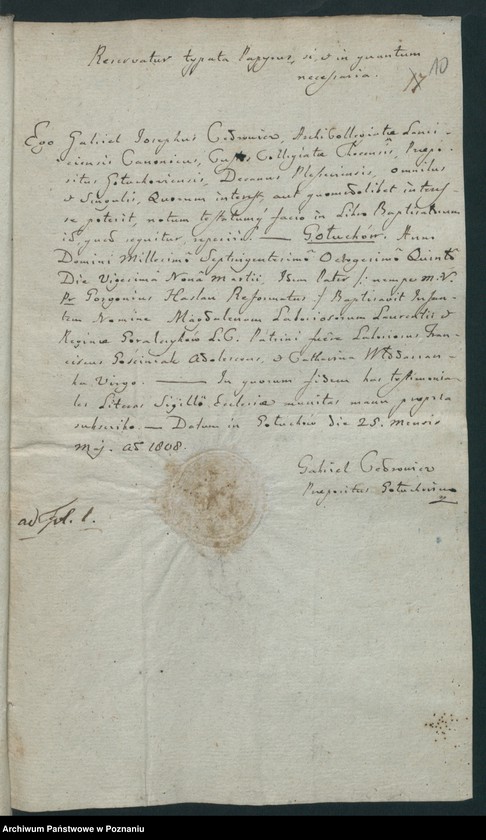 Reservatur typata Papyrus, si & in quantum
necessaria.
10
Ego Gabriel Josephus Cedrowicz, Archicollegiatæ Lanci-
ciensis Canonicus, Custos Collegiatæ Choceнsis, Præpo-
situs Gołuchoviensis, Decanus Plesseviensis, omnibus
& Singulis, Quorum interest, aut quomodolibet interes-
se poterit, notum testatumq facio in Libro Baptisatorum
id, quod sequitur, reperiri. — Gołuchów. Anno
Domini Millesimô Septuigentesimô Octogesimô Quintô
Die Vigesimâ Nonâ Martii, Idem Pater /: nempe m. V.
Pr Gorgonius Haslau Reformatus :/ Baptisavit Infan-
tem Nomine Magdalenam Laboriosorum Laurentii &
Reginæ Goralczyków L. C. Patrini fuere Laboriosus Fran-
ciscus Gościniak Adolescens, & Catharina Włodarczan-
ka Virgo. — In quorum fidem has testimonia-
les Literas Sigillô Ecclesiæ munitas manu propria
subscribo. — Datum in Gołuchow die 25. mensis
Maj. aō 1808.
Gabriel Cedrowicz
Præpositus Gołuchoviensis
ad Fol. 1.
Archiwum Państwowe w Poznaniu